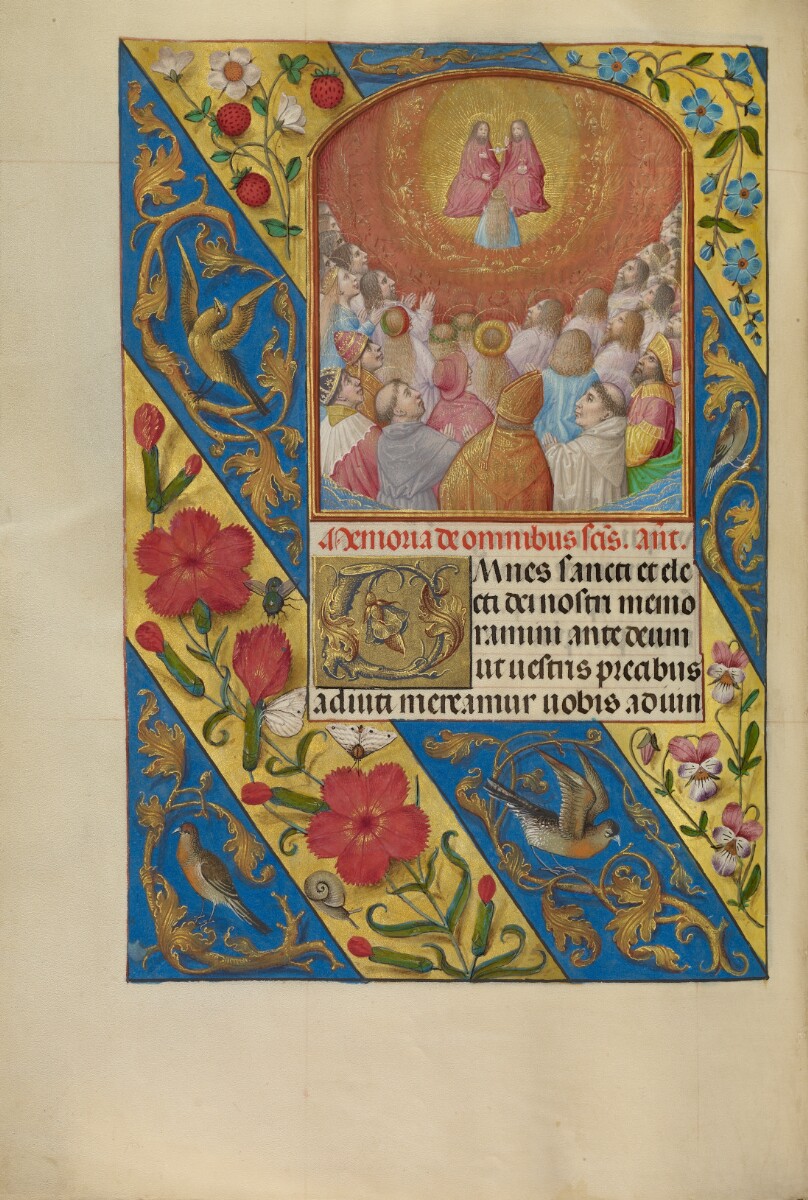 Memoria de omnibus scis. ant.
OMnes sancti et ele
cti dei nostri memo
ramini ante deum
ut uestris precibus
adiuti mereamur uobis adiun